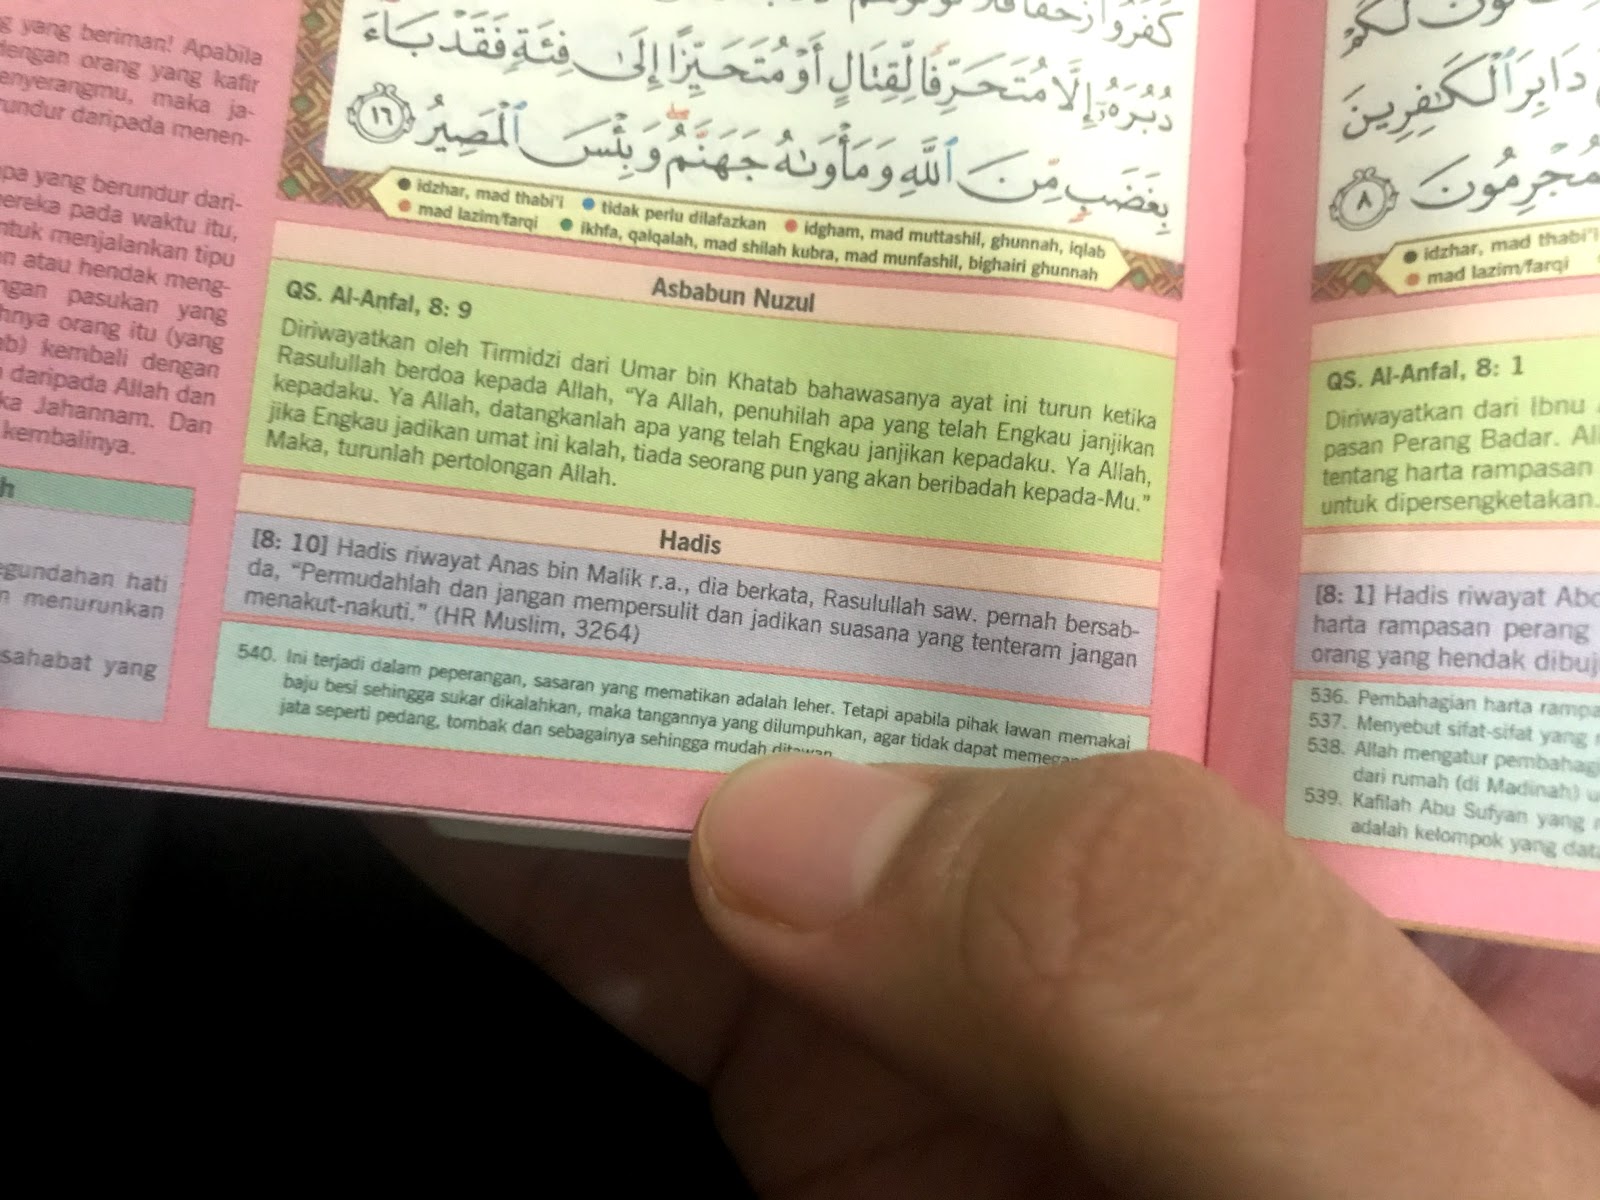 g yang beriman! Apabila
dengan orang yang kafir
enyerangmu, maka ja-
undur daripada menen-
pa yang berundur dari-
ereka pada waktu itu,
ntuk menjalankan tipu
n atau hendak meng-
ngan pasukan yang
hnya orang itu (yang
ab) kembali dengan
daripada Allah dan
ka Jahannam. Dan
kembalinya.
h
egundahan hati
n menurunkan
sahabat yang
كَفَرُوا زَحْفًا فَلَا
دُبُرَهُۥٓ إِلَّا مُتَحَرِّفًا لِّقِتَالٍ أَوْ مُتَحَيِّزًا إِلَىٰ فِئَةٍ فَقَدْ بَآءَ
بِغَضَبٍ مِّنَ ٱللَّهِ وَمَأْوَىٰهُ جَهَنَّمُ ۖ وَبِئْسَ ٱلْمَصِيرُ ١٦
idzhar, mad thabi'i tidak perlu dilafazkan idgham, mad muttashil, ghunnah, iqlab
mad lazim/farqi ikhfa, qalqalah, mad shilah kubra, mad munfashil, bighairi ghunnah
Asbabun Nuzul
QS. Al-Anfal, 8: 9
Diriwayatkan oleh Tirmidzi dari Umar bin Khatab bahawasanya ayat ini turun ketika
Rasulullah berdoa kepada Allah, “Ya Allah, penuhilah apa yang telah Engkau janjikan
kepadaku. Ya Allah, datangkanlah apa yang telah Engkau janjikan kepadaku. Ya Allah,
jika Engkau jadikan umat ini kalah, tiada seorang pun yang akan beribadah kepada-Mu.”
Maka, turunlah pertolongan Allah.
Hadis
[8: 10] Hadis riwayat Anas bin Malik r.a., dia berkata, Rasulullah saw. pernah bersab-
da, “Permudahlah dan jangan mempersulit dan jadikan suasana yang tenteram jangan
menakut-nakuti.” (HR Muslim, 3264)
540. Ini terjadi dalam peperangan, sasaran yang mematikan adalah leher. Tetapi apabila pihak lawan memakai
baju besi sehingga sukar dikalahkan, maka tangannya yang dilumpuhkan, agar tidak dapat memegan
jata seperti pedang, tombak dan sebagainya sehingga mudah ditawan.
دَابِرَ ٱلْكَٰفِرِينَ
ٱلْمُجْرِمُونَ ٨
idzhar, mad thabi'i
mad lazim/farqi
QS. Al-Anfal, 8: 1
Diriwayatkan dari Ibnu
pasan Perang Badar. All
tentang harta rampasan
untuk dipersengketakan.
[8: 1] Hadis riwayat Abd
harta rampasan perang
orang yang hendak dibuj
536. Pembahagian harta rampa
537. Menyebut sifat-sifat yang
538. Allah mengatur pembahag
dari rumah (di Madinah) u
539. Kafilah Abu Sufyan yang
adalah kelompok yang data